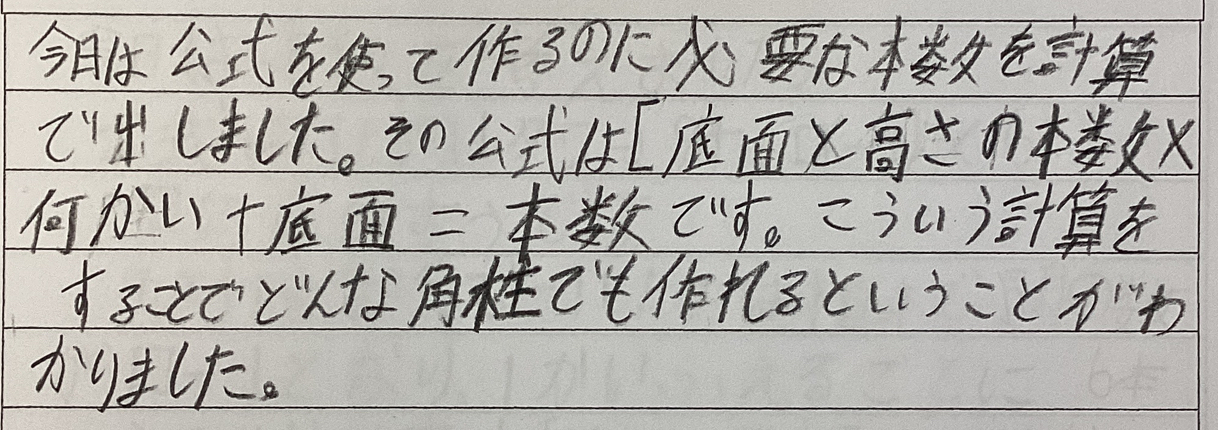 今日は公式を使って作るのに必要な本数を計算
で出しました。その公式は[底面と高さの本数×
何かい+底面=本数です。こういう計算を
することでどんな角柱でも作れるということがわ
かりました。